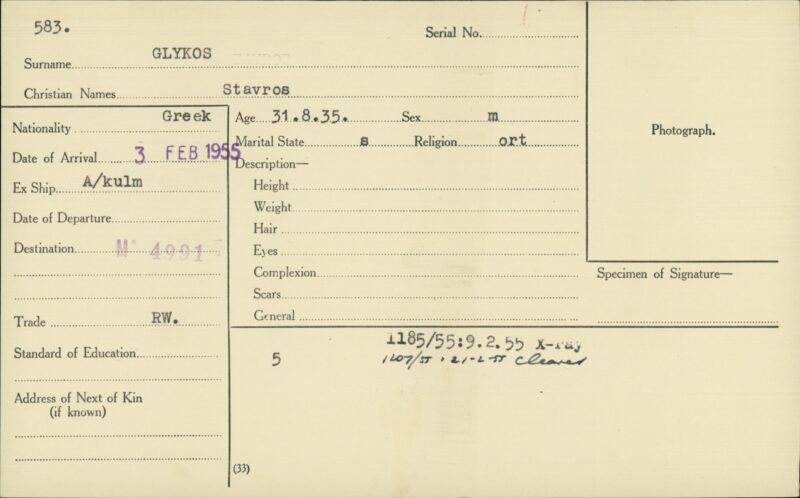 583.
Serial No.
Surname GLYKOS
Christian Names Stavros
Nationality Greek
Date of Arrival 3 FEB 1955
Ex Ship A/kulm
Date of Departure
Destination 4991
Trade RW.
Standard of Education
Address of Next of Kin
(if known)
Age 31.8.35. Sex m
Marital State s Religion ort
Description—
Height
Weight
Hair
Eyes
Complexion
Scars
General
Photograph.
Specimen of Signature—
1185/55:9.2.55 X-ray
5 1207/55 . 21-2-55 Cleared
(33)